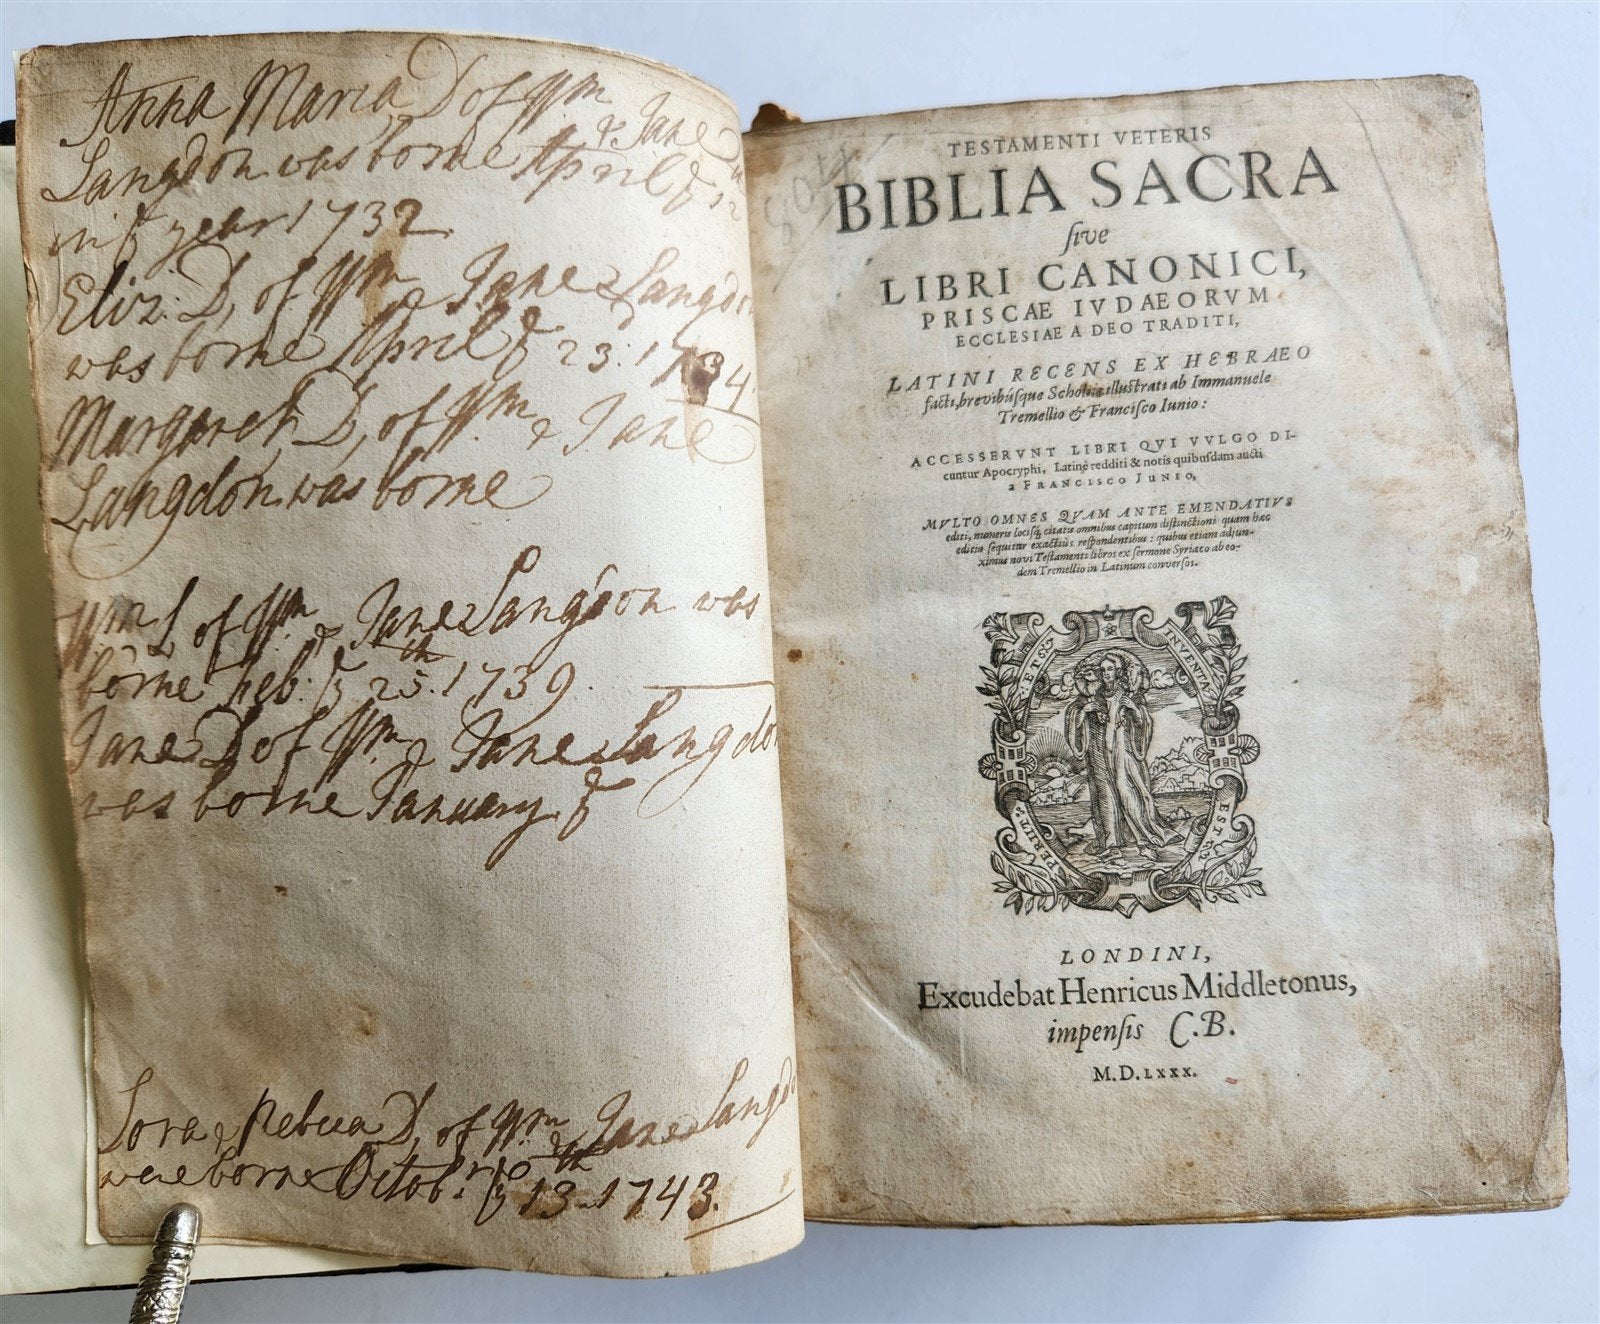 Anna Maria D of Wm
& Jane
Langdon was borne April ye 12
in ye year 1732
Eliz: D, of Wm & Jane Langdon
was borne April ye 23: 1734
Margaret D, of Wm & Jane
Langdon was borne
Wm L of Wm & Jane Langdon was
borne Feb: ye 25th. 1739.
Jane D of Wm & Jane Langdon
was borne January. ye
& Rebecca D, of Wm & Jane Langdo
were borne Octobr ye 13th 1743.
8044
TESTAMENTI VETERIS
BIBLIA SACRA
ſive
LIBRI CANONICI,
PRISCAE IVDAEORVM
ECCLESIAE A DEO TRADITI,
LATINI RECENS EX HEBRAEO
facti, brevibúſque Scholiis illuſtrati ab Immanuele
Tremellio & Franciſco Iunio:
ACCESSERVNT LIBRI QVI VVLGO DI-
cuntur Apocryphi, Latinè redditi & notis quibuſdam aucti
a FRANCISCO JUNIO,
MVLTO OMNES QVAM ANTE EMENDATIVS
editi, numeris lociſq; citatis omnibus capitum diſtinctioni quam hæc
editio ſequitur exactiùs reſpondentibus: quibus etiam adjun-
ximus novi Teſtamenti libros ex ſermone Syriaco ab eo-
dem Tremellio in Latinum converſos.
PERIIT: ET INVENTA EST:
LONDINI,
Excudebat Henricus Middletonus,
impenſis C.B.
M.D.LXXX.